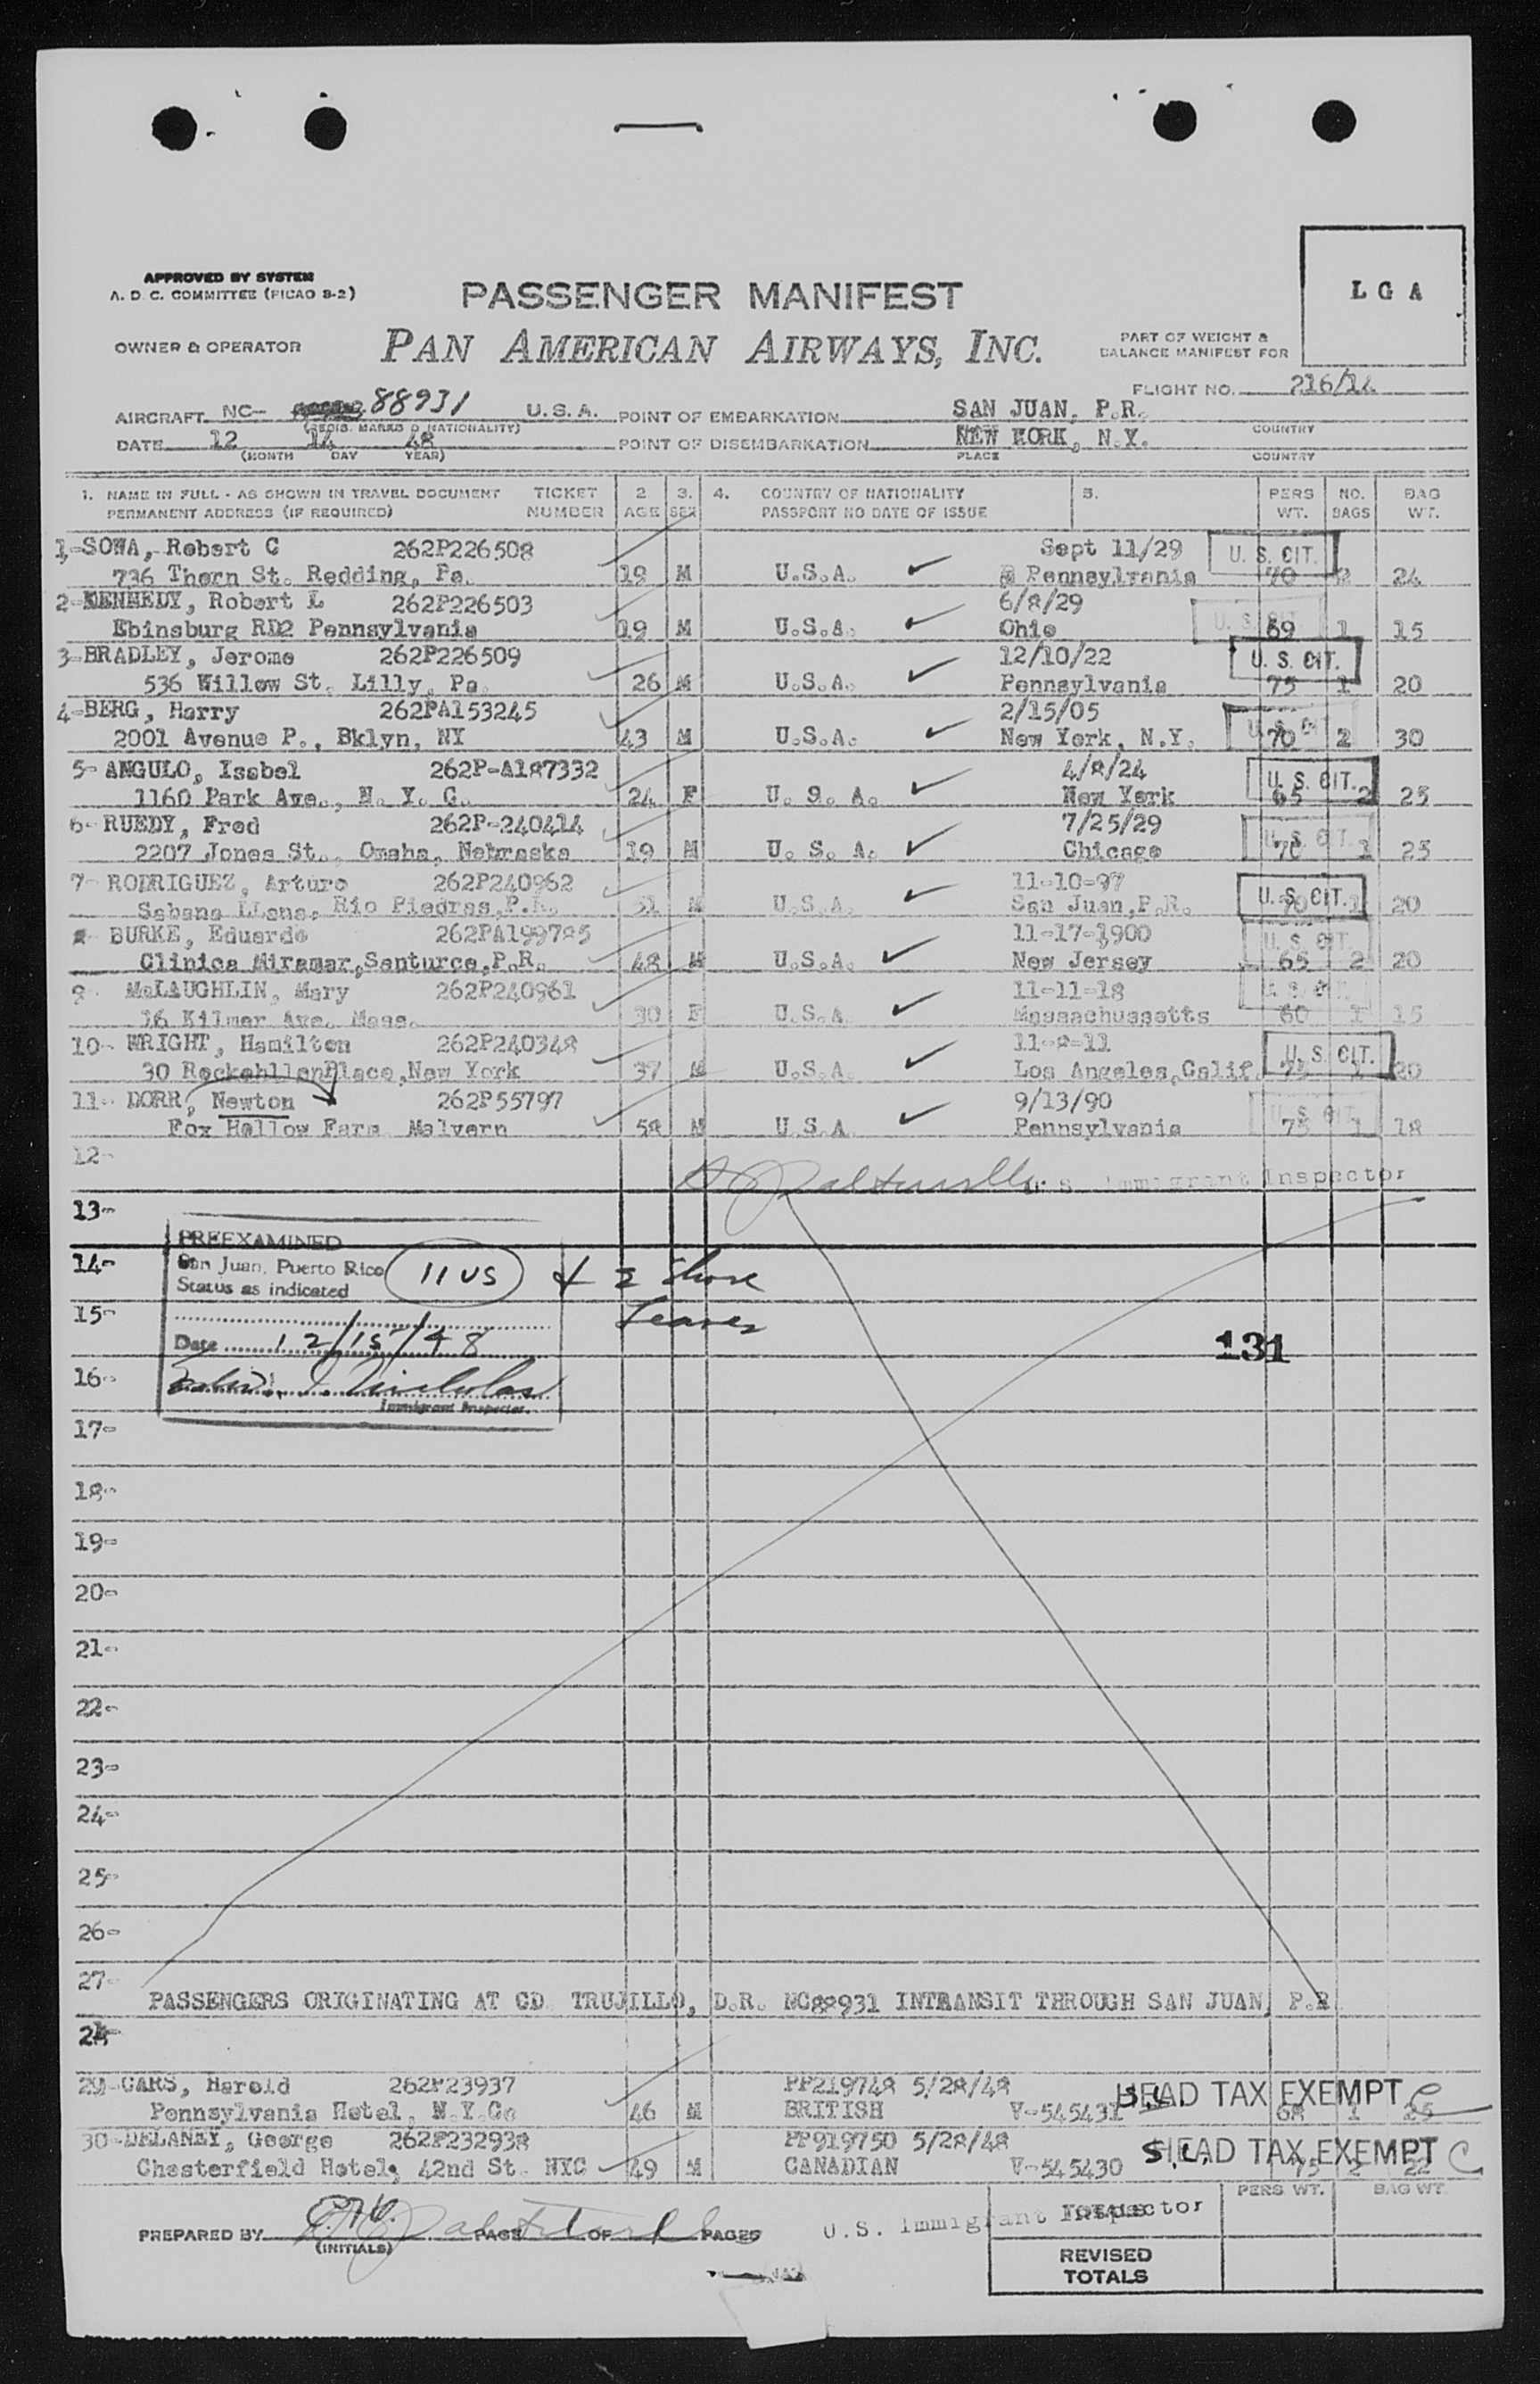 APPROVED BY SYSTEM
A. D. C. COMMITTEE (PICAO 8-2)
PASSENGER MANIFEST
L G A
OWNER & OPERATOR
PAN AMERICAN AIRWAYS, INC.
PART OF WEIGHT &
BALANCE MANIFEST FOR
FLIGHT NO. 216/14
AIRCRAFT NC- 88931 U.S.A. POINT OF EMBARKATION SAN JUAN, P.R.
(REGIS. MARKS & NATIONALITY) COUNTRY
DATE 12 14 48 POINT OF DISEMBARKATION NEW YORK, N.Y.
(MONTH DAY YEAR) PLACE COUNTRY
1. NAME IN FULL - AS SHOWN IN TRAVEL DOCUMENT TICKET 2 3. 4. COUNTRY OF NATIONALITY 5. PERS NO. BAG
PERMANENT ADDRESS (IF REQUIRED) NUMBER AGE SEX PASSPORT NO DATE OF ISSUE WT. BAGS WT.
1-SOWA, Robert C 262P226508 Sept 11/29 U. S. CIT.
736 Thorn St. Redding, Pa. 19 M U.S.A. Pennsylvania 70 2 24
2-KENNEDY, Robert L 262P226503 6/8/29
Ebinsburg RD2 Pennsylvania 19 M U.S.A. Ohio U. S. CIT 69 1 15
3-BRADLEY, Jerome 262P226509 12/10/22 U. S. CIT.
536 Willow St. Lilly, Pa. 26 M U.S.A. Pennsylvania 75 1 20
4-BERG, Harry 262PA153245 2/15/05
2001 Avenue P., Bklyn, NY 43 M U.S.A. New York, N.Y. U. S. CIT 70 2 30
5- ANGULO, Isabel 262P-A187332 4/8/24 U. S. CIT.
1160 Park Ave., N. Y. C. 24 F U. S. A. New York 65 2 25
6- RUEDY, Fred 262P-240414 7/25/29
2207 Jones St., Omaha, Nebraska 19 M U. S. A. Chicago U. S. CIT 70 1 25
7- RODRIGUEZ, Arturo 262P240962 11-10-97 U. S. CIT.
Sabana LLana, Rio Piedras, P.R. 51 M U.S.A. San Juan, P.R. 70 1 20
BURKE, Eduardo 262PA199785 11-17-1900 U. S. CIT.
Clinica Miramar, Santurce, P.R. 48 M U.S.A. New Jersey 65 2 20
9- McLAUGHLIN, Mary 262P240961 11-11-18 U. S. CIT
16 Kilmer Ave. Mass. 30 F U.S.A. Massachussetts 60 1 15
10- WRIGHT, Hamilton 262P240348 11-8-11 U. S. CIT.
30 RockehllenPlace, New York 37 M U.S.A. Los Angeles, Calif. 75 1 20
11- DORR, Newton 262P55797 9/13/90 U. S. CIT
Fox Hollow Farm Malvern 58 M U.S.A. Pennsylvania 75 1 18
12-
U. S. Immigrant Inspector
13-
PREEXAMINED
14- San Juan, Puerto Rico 11 US & 2 Shore
Status as indicated
15- Leaves
131
Date 12/15/48
16-
Immigrant Inspector.
17-
18-
19-
20-
21-
22-
23-
24-
25-
26-
27-
PASSENGERS ORIGINATING AT CD TRUJILLO, D.R. NC88931 INTRANSIT THROUGH SAN JUAN, P.R
28-
29-CARS, Harold 262P23937 PP219748 5/28/48 HEAD TAX EXEMPT
Pennsylvania Hotel, N.Y.C. 46 M BRITISH V-545431 68 1 25
30-DELANEY, George 262P232938 PP919750 5/28/48 HEAD TAX EXEMPT C
Chesterfield Hotel, 42nd St. NYC 49 M CANADIAN V-545430 75 2 22
PERS WT. BAG WT.
PREPARED BY PAGE OF PAGES U.S. Immigrant Inspector TOTALS
(INITIALS)
REVISED
TOTALS